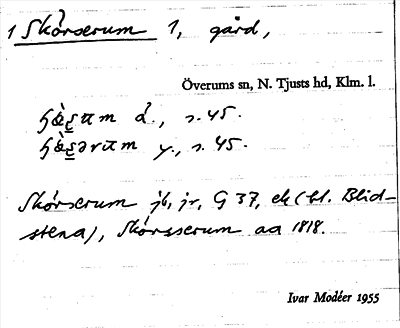 1 Skórserum 1, gård,
Överums sn, N. Tjusts hd, Klm. l.
d., s. 45.
y., s. 45.
Skórserum jb, jr, G 37, ek (bl. Blid-
stena), Skórsserum aa 1818.
Ivar Modéer 1955